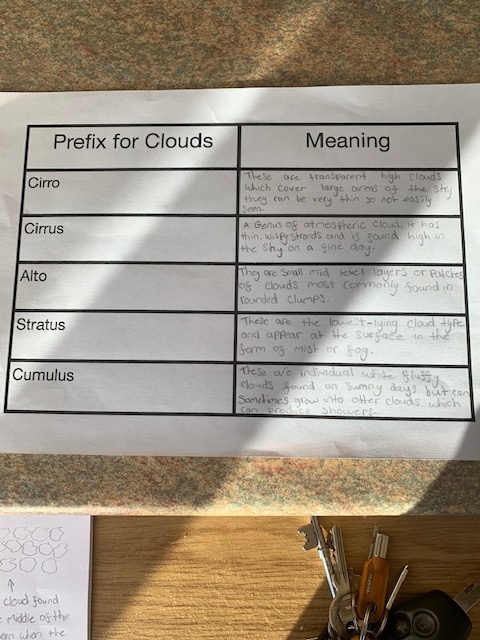 Prefix for Clouds
Meaning
Cirro
These are transparent high clouds
which cover large areas of the sky
they can be very thin so not easily
seen.
Cirrus
A Genus of atmospheric cloud, it has
thin, wispy strands and is found high in
the sky on a fine day.
Alto
They are small mid level layers or Patches
of clouds most commonly found in
rounded clumps.
Stratus
These are the lowest-lying cloud type
and appear at the surface in the
form of mist or fog.
Cumulus
These are individual white fluffy
clouds found on sunny days but can
sometimes grow into other clouds which
can produce showers.
cloud found
middle of the
when the